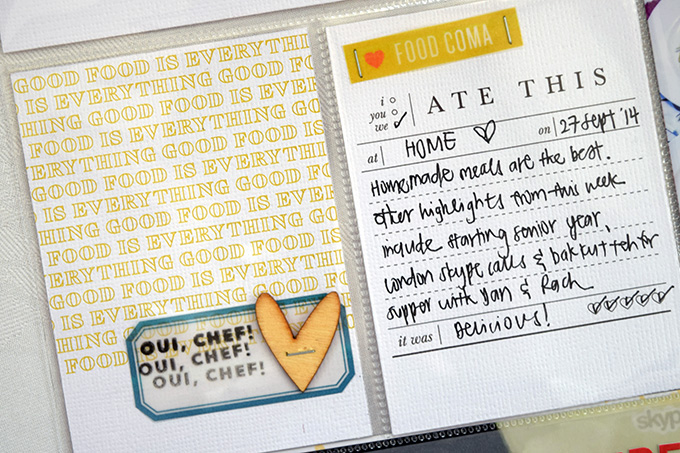 GOOD FOOD IS EVERYTHI
IS EVERYTHING GOOD FO
HING GOOD FOOD IS EVE
GOOD FOOD IS EVERYTHI
IS EVERYTHING GOOD FO
HING GOOD FOOD IS EVE
GOOD FOOD IS EVERYTHI
IS EVERYTHING GOOD FO
THING GOOD FOOD IS EVE
GOOD FOOD IS EVERYTHI
IS EVERYTHING GOOD
THING GOOD
GOOD FOOD
OUI, CHEF!
OUI, CHEF!
OUI, CHEF!
FOOD COMA
i
you
we
ATE THIS
at HOME on 27 Sept '14
Homemade meals are the best.
other highlights from this week
include starting senior year,
london skype calls & bak kut teh for
supper with Yan & Rach
it was Delicious!
skyp